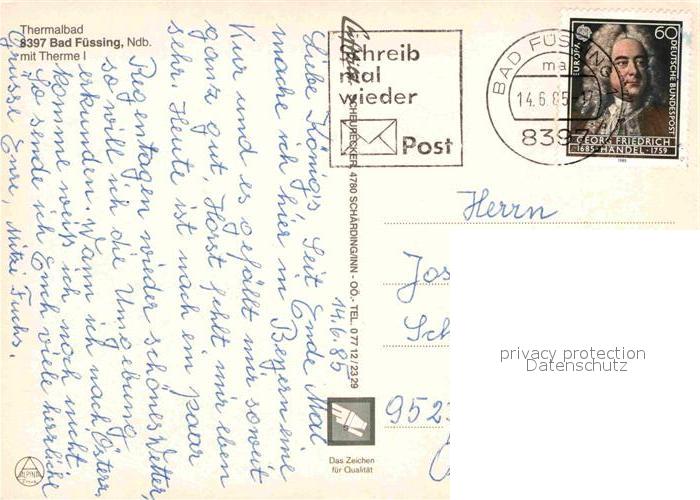 Thermalbad
8397 Bad Füssing, Ndb.
mit Therme I
Schreib
mal
wieder
Post
BAD FÜSSING
14.6.85
8397
EUROPA
60
DEUTSCHE BUNDESPOST
GEORG FRIEDRICH
1685 · HÄNDEL · 1759
1985
SCHEURECKER, 4780 SCHÄRDING/INN - OÖ. - TEL. 0 77 12 / 23 29
14.6.85
Liebe Königs! Seit Ende Mai
mache ich hier in Bayern eine
Kur und es gefällt mir soweit
ganz gut, Horst fehlt mir eben
sehr. Heute ist nach ein paar
Regentagen wieder schönes Wetter,
so will ich die Umgebung
erkunden. Wann ich nach Österr.
komme weiß ich noch nicht
So sende ich Euch viele herzliche
Grüsse Eure, Mitzi Fuchs.
Herrn
Jos
Sch
952
Das Zeichen
für Qualität
ALPINA
privacy protection
Datenschutz